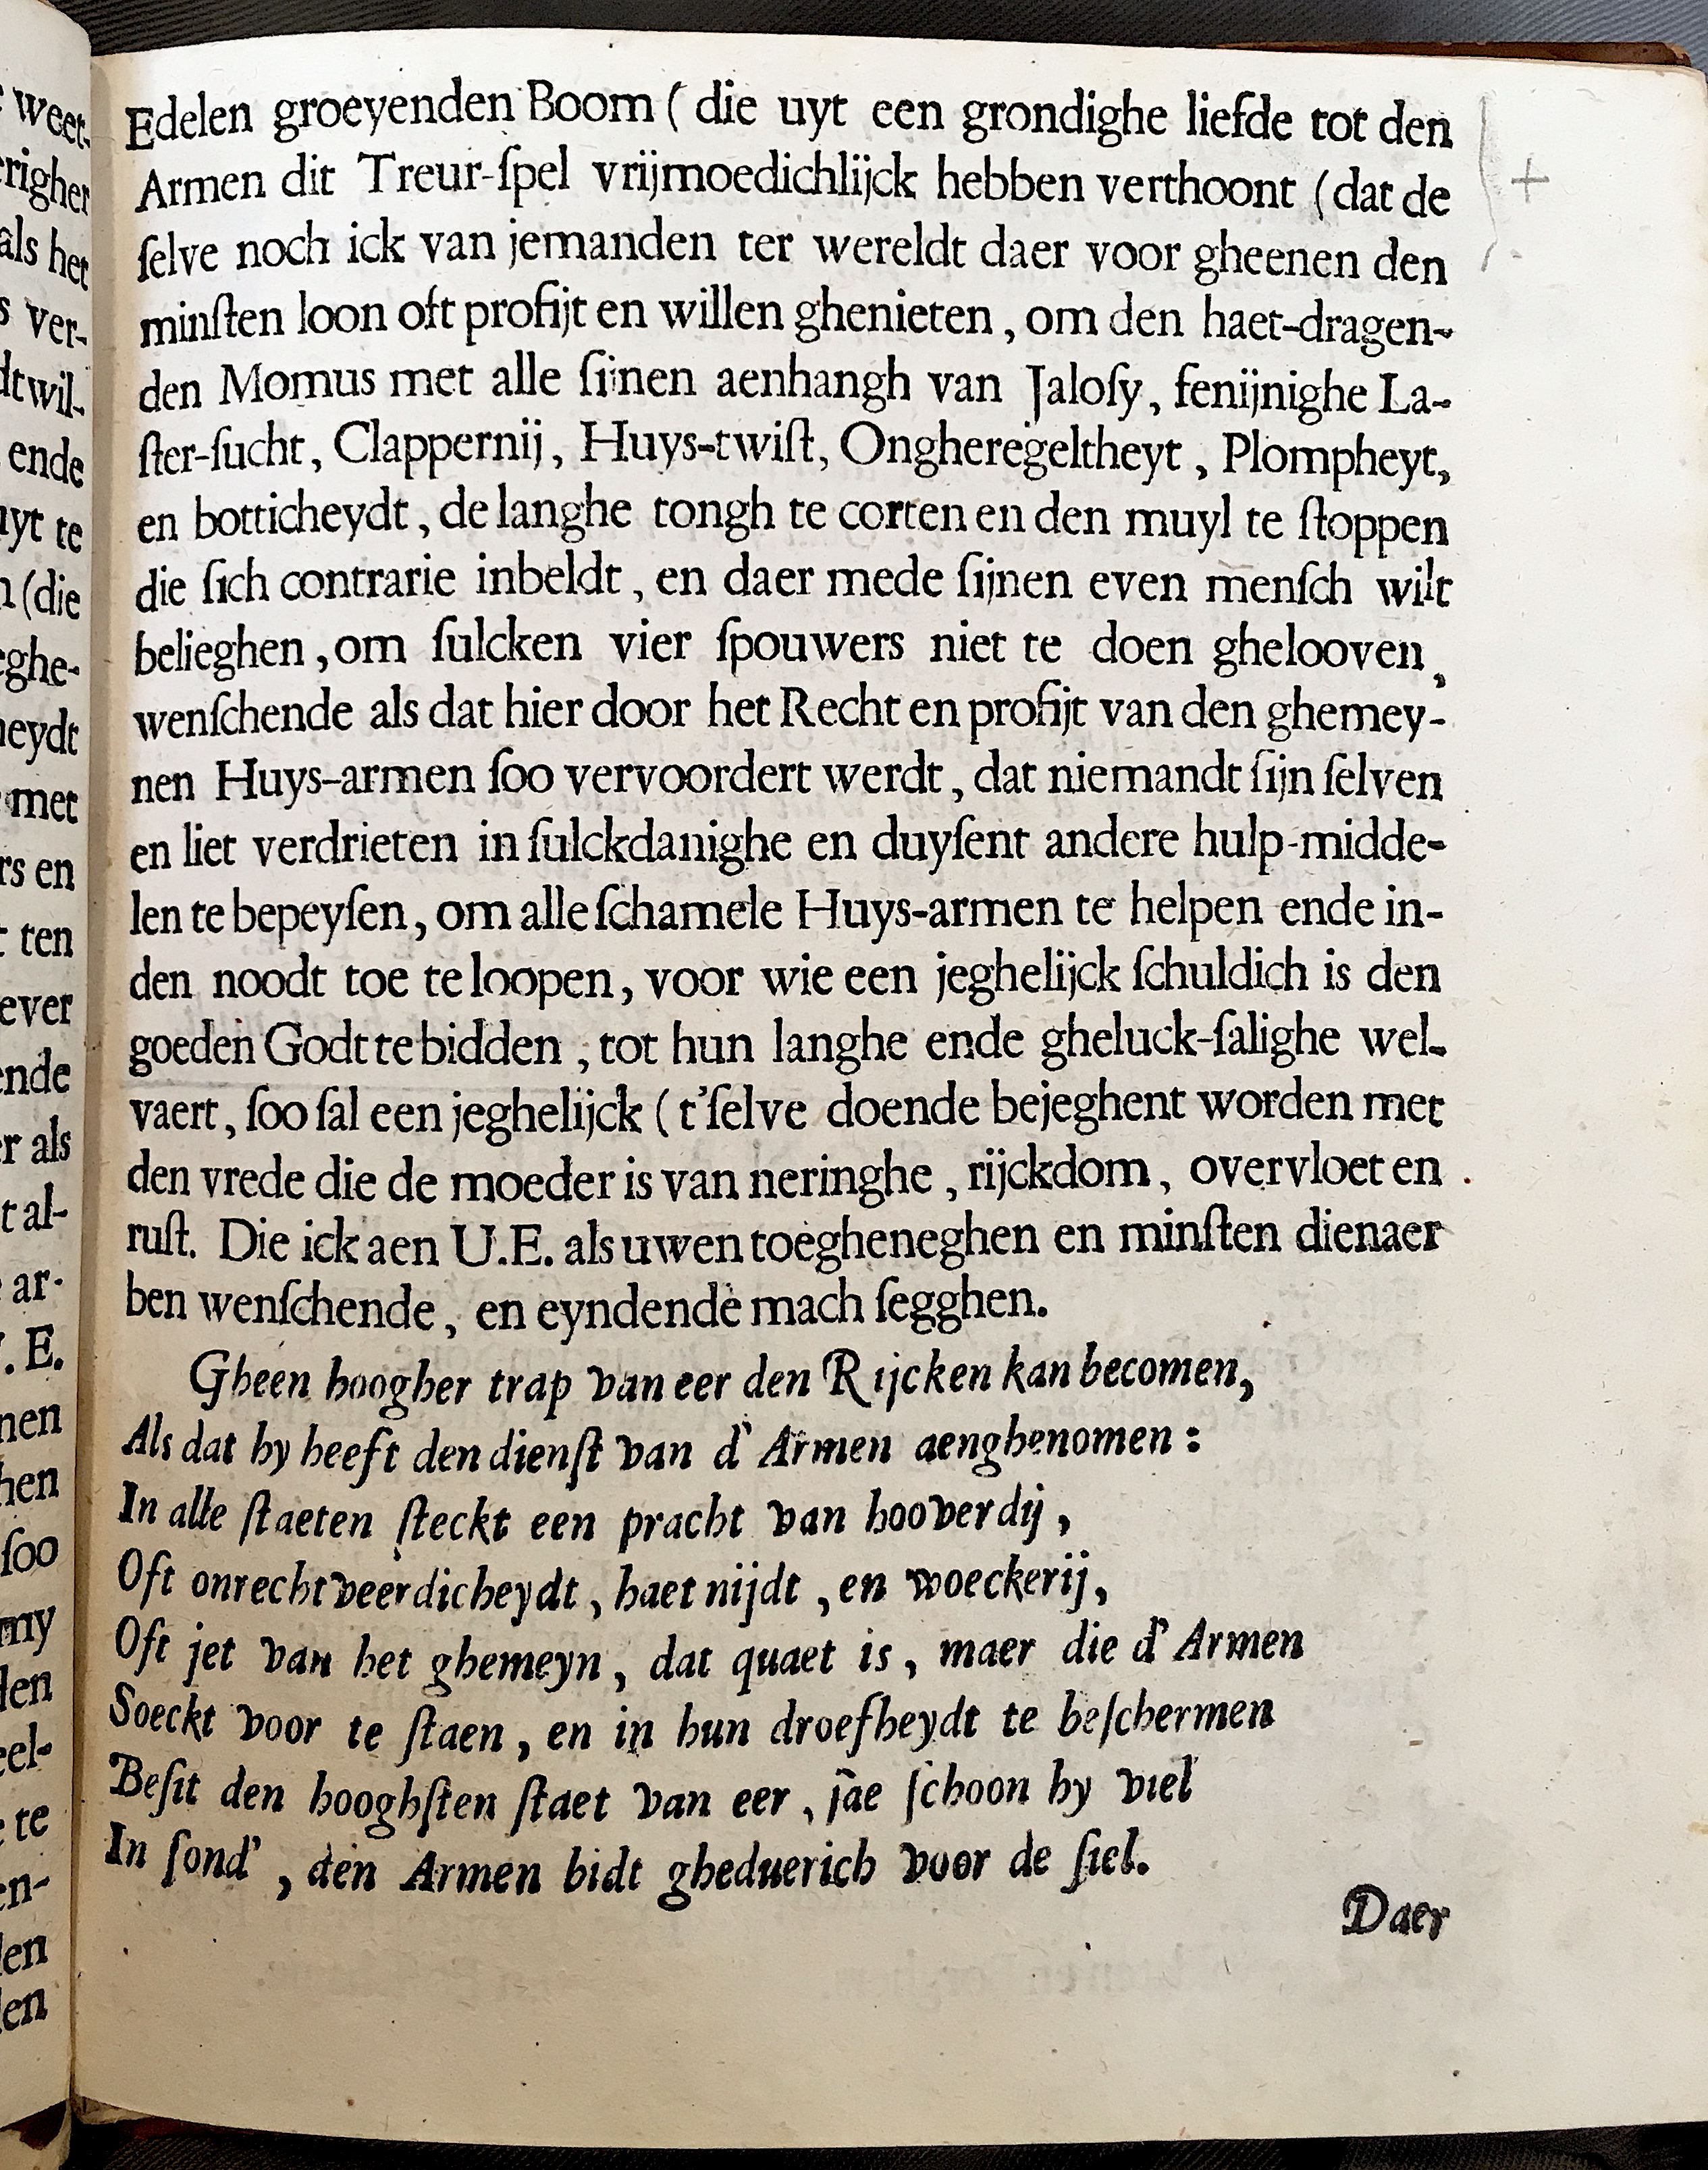 Edelen groeyenden Boom ( die uyt een grondighe liefde tot den
Armen dit Treur-ſpel vrijmoedichlijck hebben verthoont ( dat de
ſelve noch ick van jemanden ter wereldt daer voor gheenen den
minſten loon oft profijt en willen ghenieten , om den haet-dragen-
den Momus met alle ſijnen aenhangh van Jaloſy, fenijnighe La-
ſter-ſucht, Clappernij, Huys-twiſt, Ongheregeltheyt , Plompheyt,
en botticheydt, de langhe tongh te corten en den muyl te ſtoppen
die ſich contrarie inbeldt , en daer mede ſijnen even menſch wilt
belieghen , om ſulcken vier ſpouwers niet te doen ghelooven,
wenſchende als dat hier door het Recht en profijt van den ghemey-
nen Huys-armen ſoo vervoordert werdt , dat niemandt ſijn ſelven
en liet verdrieten in ſulckdanighe en duyſent andere hulp-midde-
len te bepeyſen, om alle ſchamele Huys-armen te helpen ende in-
den noodt toe te loopen, voor wie een jeghelijck ſchuldich is den
goeden Godt te bidden , tot hun langhe ende gheluck-ſalighe wel-
vaert, ſoo ſal een jeghelijck ( t'ſelve doende bejeghent worden met
den vrede die de moeder is van neringhe , rijckdom, overvloet en
ruſt. Die ick aen U.E. als uwen toegheneghen en minſten dienaer
ben wenſchende, en eyndende mach ſegghen.
Gheen hoogher trap van eer den Rijcken kan becomen,
Als dat hy heeft den dienſt van d' Armen aenghenomen :
In alle ſtaeten ſteckt een pracht van hooverdij ,
Oft onrechtveerdicheydt , haet nijdt , en woeckerij,
Oft jet van het ghemeyn , dat quaet is , maer die d' Armen
Soeckt voor te ſtaen , en in hun droefheydt te beſchermen
Beſit den hooghſten ſtaet van eer , jae ſchoon hy viel
In ſond' , den Armen bidt gheduerich voor de ſiel.
Daer